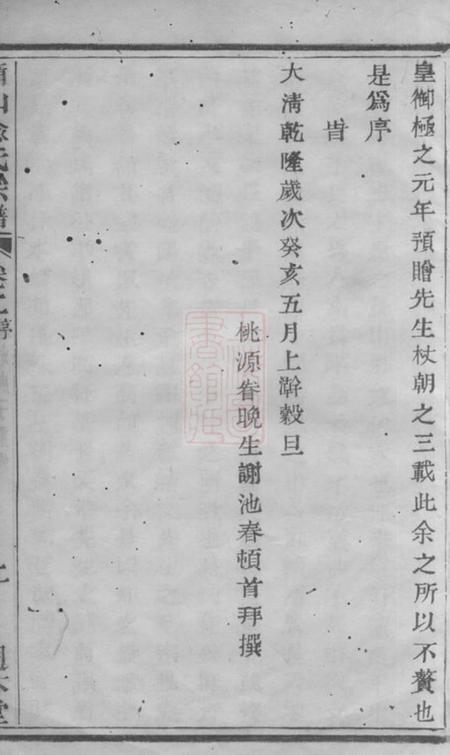 皇御極之元年預贈先生杖朝之三載此余之所以不贅也
是爲序
旹
大清乾隆歲次癸亥五月上澣穀旦
桃源眷晚生謝池春頓首拜撰
山 氏宗譜 卷之 序